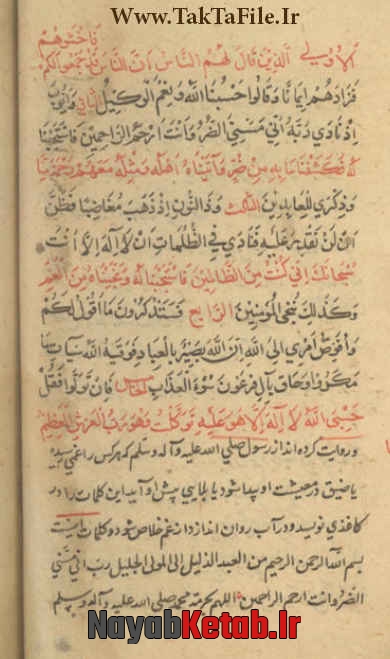 www.TakTaFile.Ir
فاخشوهم
الاولی الذین قال لهم الناس ان الناس قد جمعوا لکم
فزادهم ایمانا و قالوا حسبنا الله و نعم الوکیل الثانی و ایوب
اذ نادی ربه انی مسنی الضر و انت ارحم الراحمین فاستجبنا
له فکشفنا ما به من ضر و آتیناه اهله و مثله معهم رحمة منا
و ذکری للعابدین الثالث و ذا النون اذ ذهب مغاضبا فظن
ان لن نقدر علیه فنادی فی الظلمات ان لا اله الا انت
سبحانک انی کنت من الظالمین فاستجبنا له و نجیناه من الغم
و کذلک ننجی المؤمنین الرابع فستذکرون ما اقول لکم
و افوض امری الی الله ان الله بصیر بالعباد فوقیه الله سیئات ما
مکروا و حاق بآل فرعون سوء العذاب الخامس فان تولوا فقل
حسبی الله لا اله الا هو علیه توکلت و هو رب العرش العظیم
و روایت کرده اند از رسول صلی الله علیه و آله و سلم که هر کس را غمی رسیده
یا ضیق در معیشت او پیدا شود یا بلایی پیش او آید این کلمات را در
کاغذی نویسد و در آب روان اندازد از غم خلاص شود و کلمات اینست
بسم الله الرحمن الرحیم من العبد الذلیل الی المولی الجلیل رب انی مسنی
الضر و انت ارحم الراحمین اللهم بحرمة محمد صلی الله علیه و آله و سلم
NayabKetab.Ir